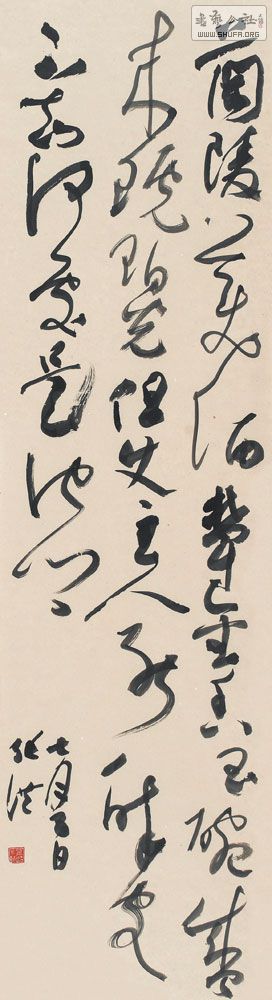 書藝公社
WWW.SHUFA.ORG
蘭陵美酒鬱金香玉碗盛
来琥珀光但使主人能醉客
不知何處是他鄉
七月日